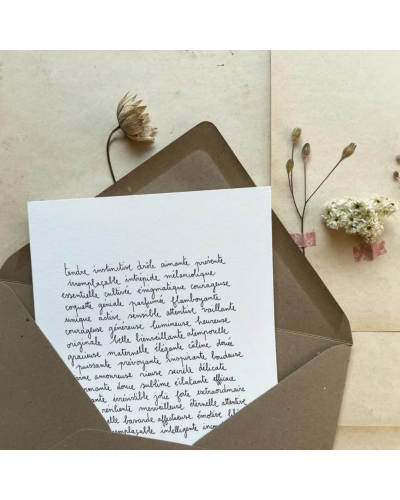 tendre instinctive drôle aimante présente
irremplaçable intrépide mélancolique
essentielle cultivé énigmatique courageuse
coquette géniale parfumée flamboyante
unique active sensible attentive vaillante
courageuse généreuse lumineuse heureuse
originale belle bienveillante atemporelle
gracieuse maternelle élégante câline douée
puissante prévoyante inspirante boudeuse
amoureuse rieuse secrète délicate
douce sublime éclatante efficace
irrésistible jolie forte extraordinaire
merveilleuse éternelle attentive
bavarde affectueuse émotive
intelligente